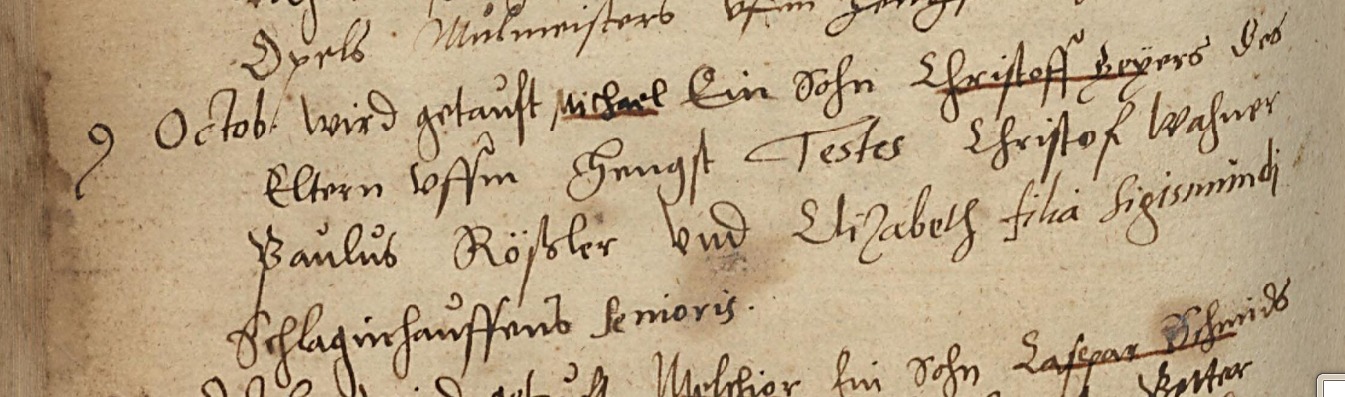 Opels Mülmeisters vfm Hengst
9 Octob: wird getaufft Michael Ein Sohn Christoff Geÿers des
Eltern vffm Hengst Testes Christof Wahner
Paulus Rößler vnd Elizabeth filia Sigismundi
Schlaginhauffens senioris.
Melchior Ein Sohn Caspar Schmids
Vetter